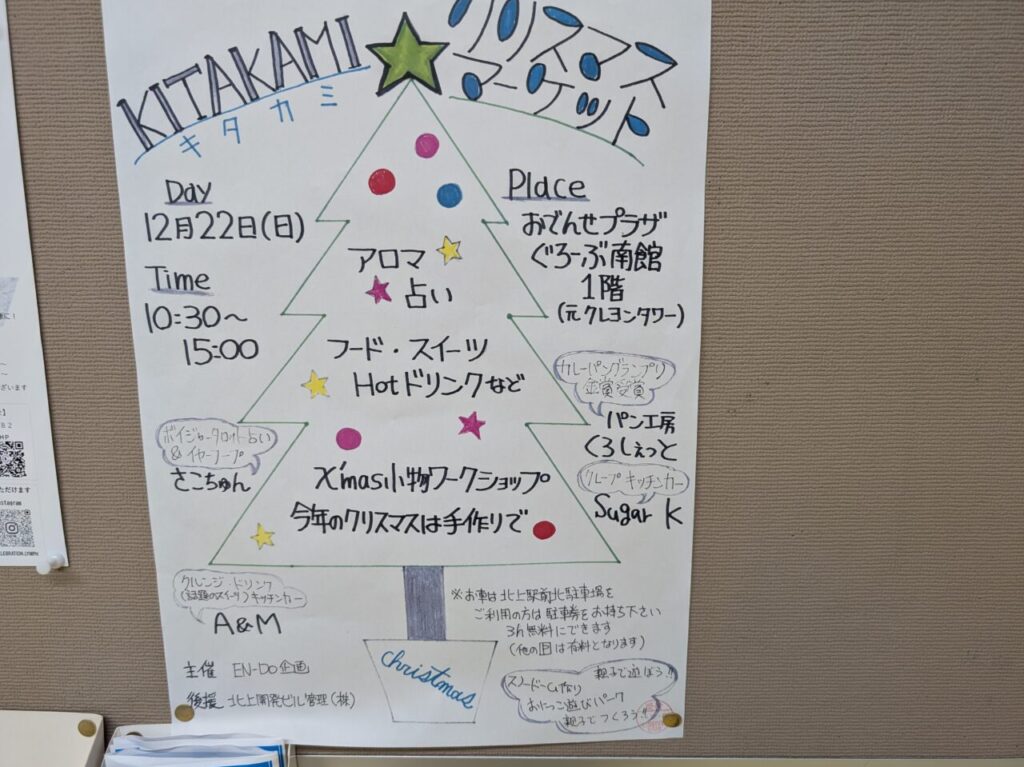 KITAKAMI
キタカミ
クリスマス
マーケット
Day
12月22日(日)
Time
10:30〜
15:00
Place
おでんせプラザ
ぐろーぶ南館
1階
(元クレヨンタワー)
アロマ
占い
フード・スイーツ
Hotドリンクなど
X'mas小物ワークショップ
今年のクリスマスは手作りで
ボイジャータロット占い
& イヤーコープ
さこちゅん
カレーパングランプリ
金賞受賞
パン工房
くろしぇっと
クレープキッチンカー
Sugar K
(話題のスイーツ)キッチンカー
A&M
※お車は北上駅前北駐車場を
ご利用の方は駐車券をお持ち下さい
3h無料にできます
(他の日は有料となります)
主催 EN-DO企画
後援 北上開発ビル管理(株)
christmas
親子で遊ぼう!!
スノードーム作り
おにっこ遊びパーク
親子でつくろう!!
ございます
ただけます